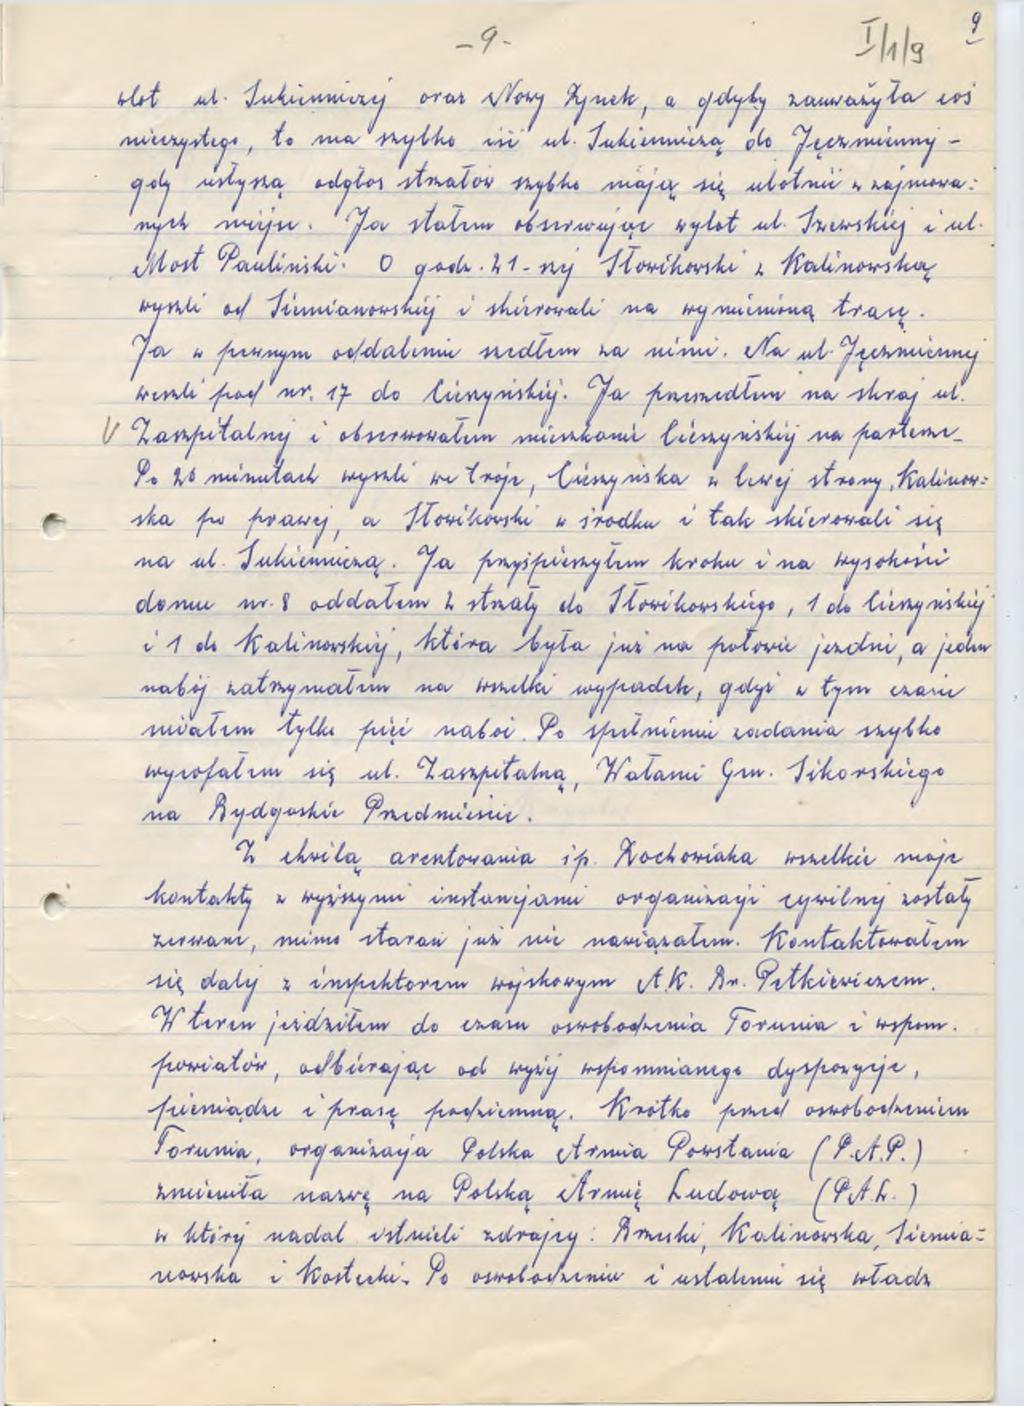 - 9 -
I/1/9
9
wlot ul. Sukienniczej oraz Nowy Rynek, a gdyby zauważyła coś
nieczystego, to ma szybko iść ul. Sukienniczą do Jęczmiennej -
gdy usłyszą odgłos strzałów szybko mają się ulotnić z zajmowa=
nych miejsc. Ja stałem obserwując wylot ul. Szewskiej i ul.
Most Pauliński. O godz. 21-szej Słowikowski z Kalinowską
wyszli od Siemianowskiej i skierowali na wymienioną trasę.
Ja w pewnym oddaleniu szedłem za nimi. Na ul. Jęczmiennej
weszli pod nr. 17 do Cieszyńskiej. Ja przeszedłem na skraj ul.
V Zaszpitalnej i obserwowałem mieszkanie Cieszyńskiej na parterze.
Po 20 minutach wyszli we trójc, Cieszyńska z lewej strony, Kalinow=
ska po prawej, a Słowikowski w środku i tak skierowali się
na ul. Sukienniczą. Ja przyśpieszyłem kroku i na wysokości
domu nr. 8 oddałem 2 strzały do Słowikowskiego, 1 do Cieszyńskiej
i 1 do Kalinowskiej, która była już na połowie jezdni, a jeden
nabój zatrzymałem na wszelki wypadek, gdyż w tym czasie
miałem tylko pięć naboi. Po spełnieniu zadania szybko
wycofałem się ul. Zaszpitalną, Wałami Gen. Sikorskiego
na Bydgoskie Przedmieście.
Z chwilą aresztowania śp. Zochowiaka wszelkie moje
kontakty z wyższymi instancjami organizacji cywilnej zostały
zerwane, mimo starań już nie nawiązałem. Kontaktowałem
się dalej z inspektorem wojskowym A.K. Br. Pietkiewiczem.
W teren jeździłem do czasu oswobodzenia Torunia i wspom.
powiatów, odbierając od wyżej wspomnianego dyspozycje,
pieniądze i prasę podziemną. Krótko przed oswobodzeniem
Torunia, organizacja Polska Armia Powstania (P.A.P.)
zmieniła nazwę na Polską Armię Ludową (P.A.L.)
w której nadal istnieli zdrajcy: Brzeski, Kalinowska, Siemia=
nowska i Kostecki. Po oswobodzeniu i ustaleniu się władz